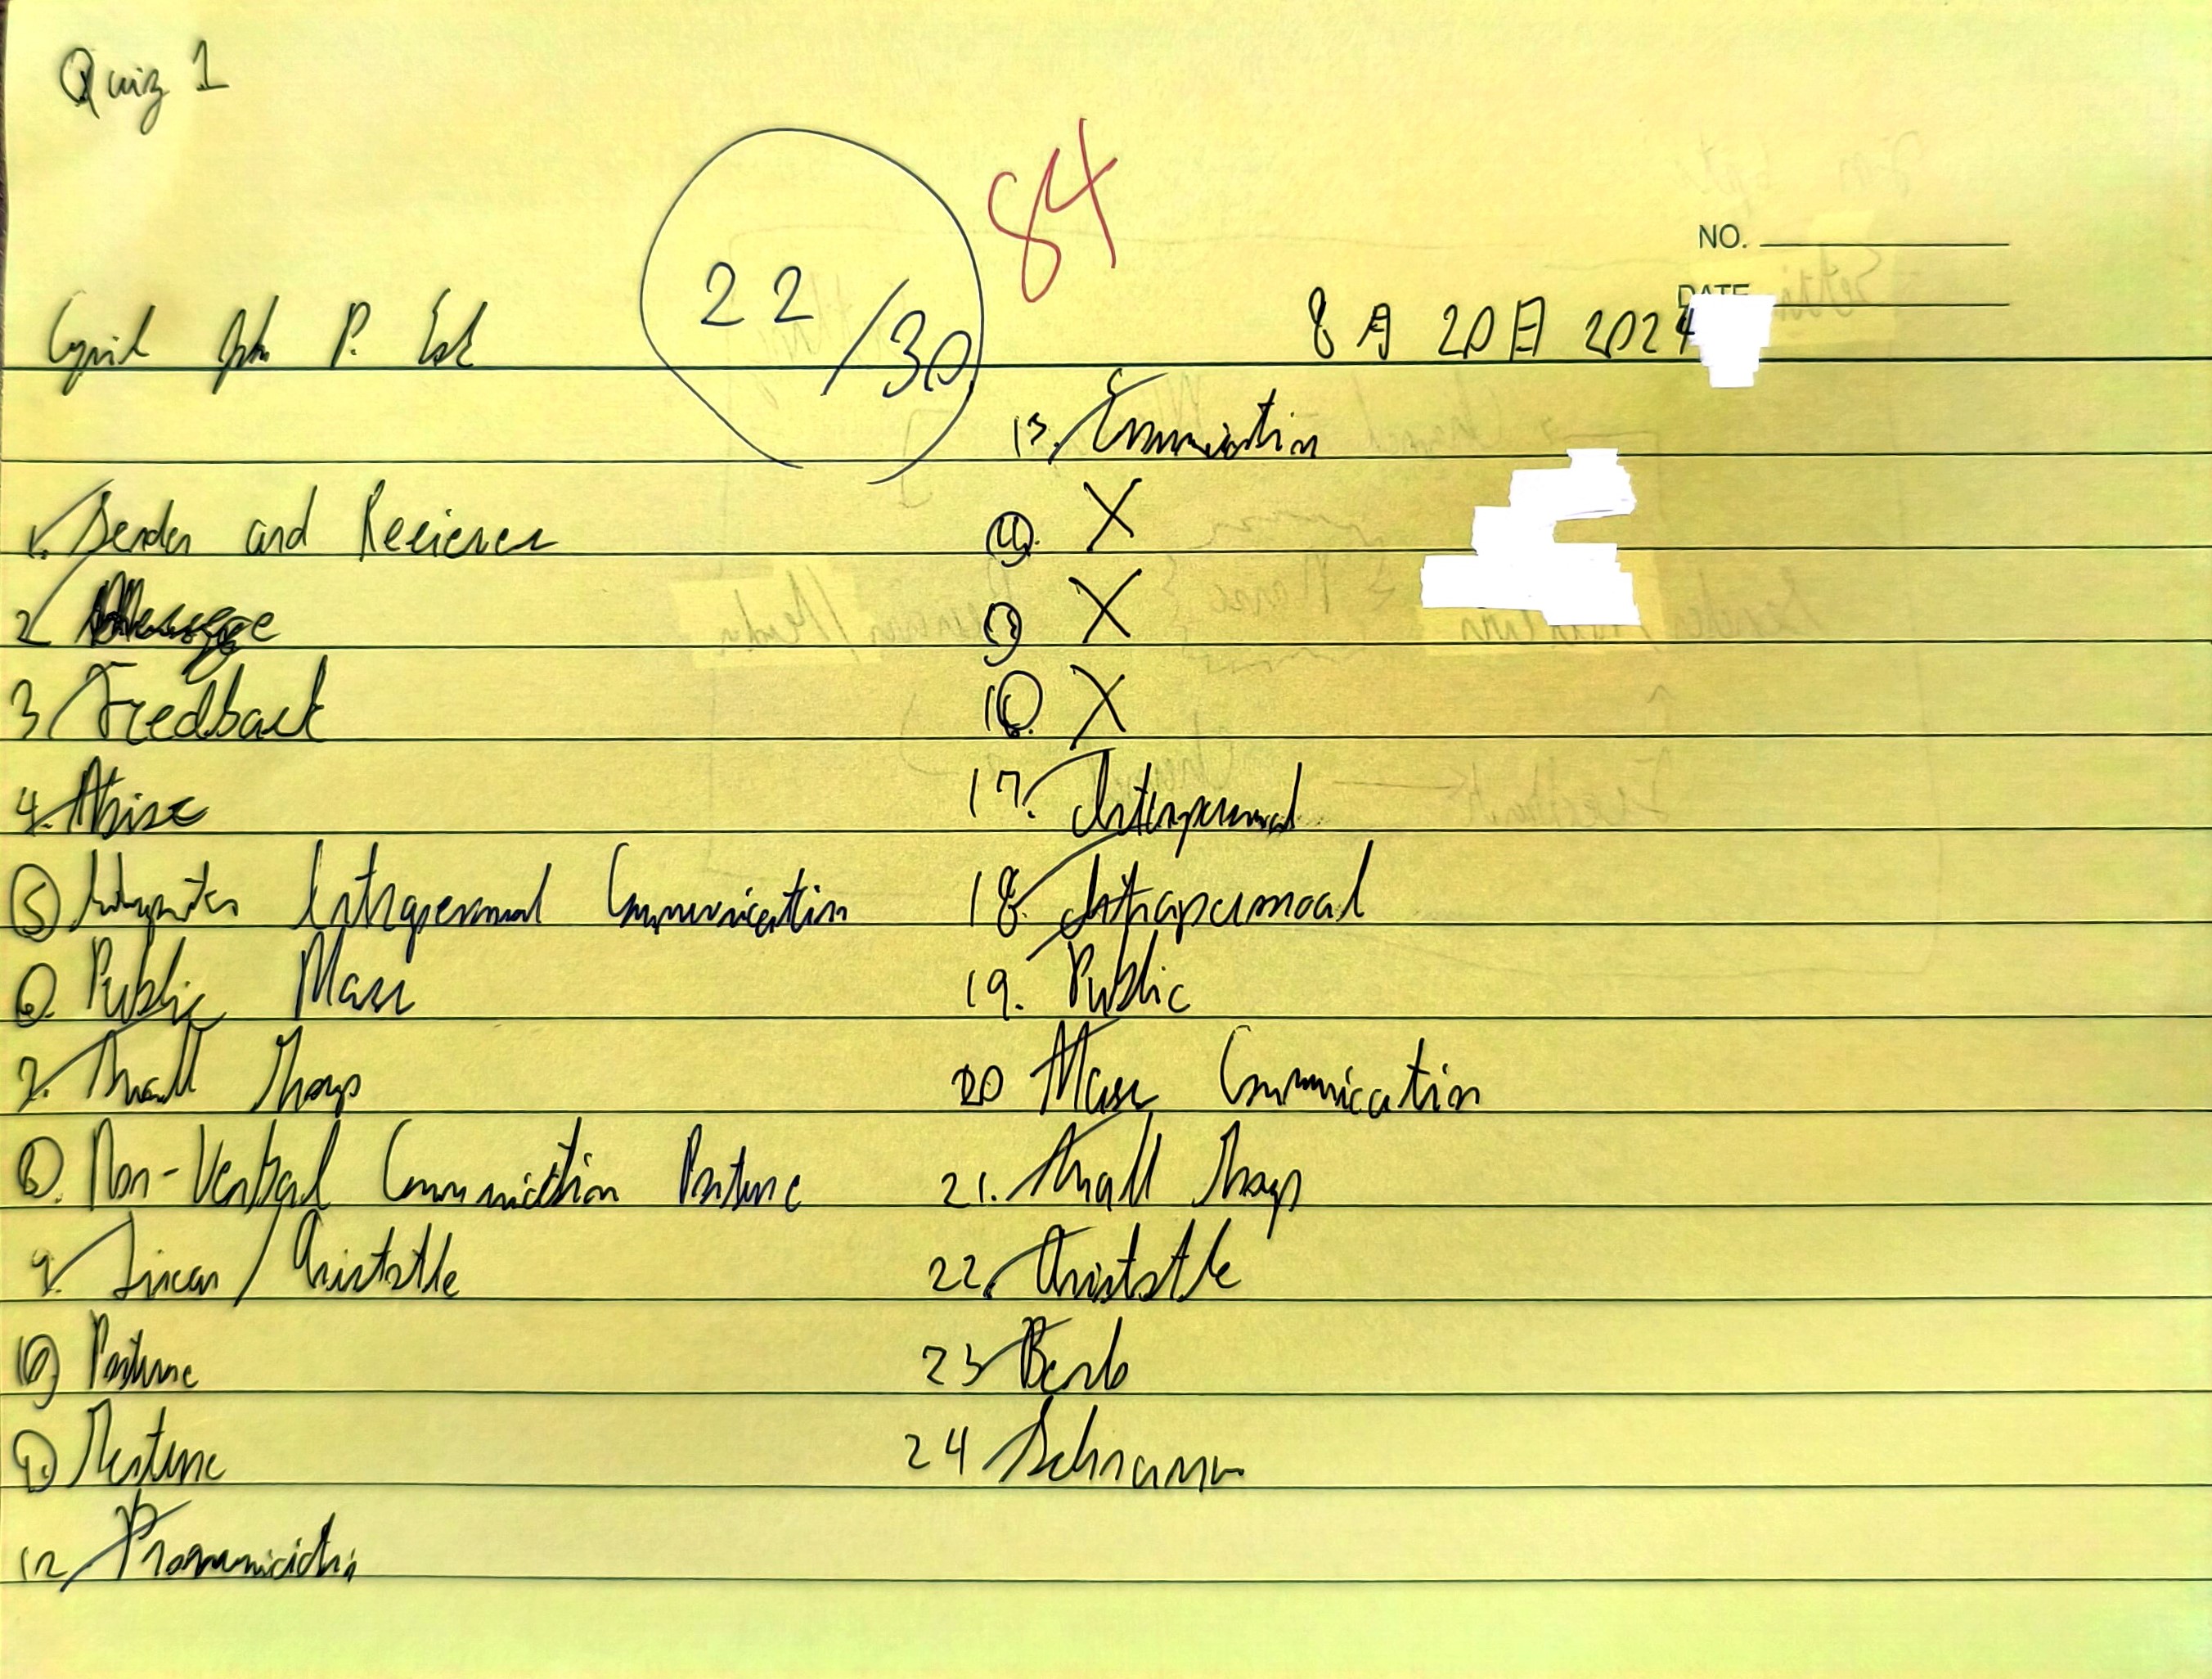 Quiz 1
84
22/30
NO.
DATE
Cyril John P.
8月 20日 2024
1. Sender and Reciever
2 Message
3 Feedback
4. Noise
5 Intrapersonal Communication
6. Public Mass
7. Small Group
8. Non-Verbal Communication Posture
9. Linear / Aristotle
10 Posture
11. Gesture
12
13. Enunciation
14. X
15 X
16. X
17. Interpersonal
18. Intrapersonal
19. Public
20 Mass Communication
21. Small Group
22. Aristotle
23 Berlo
24 Schramm